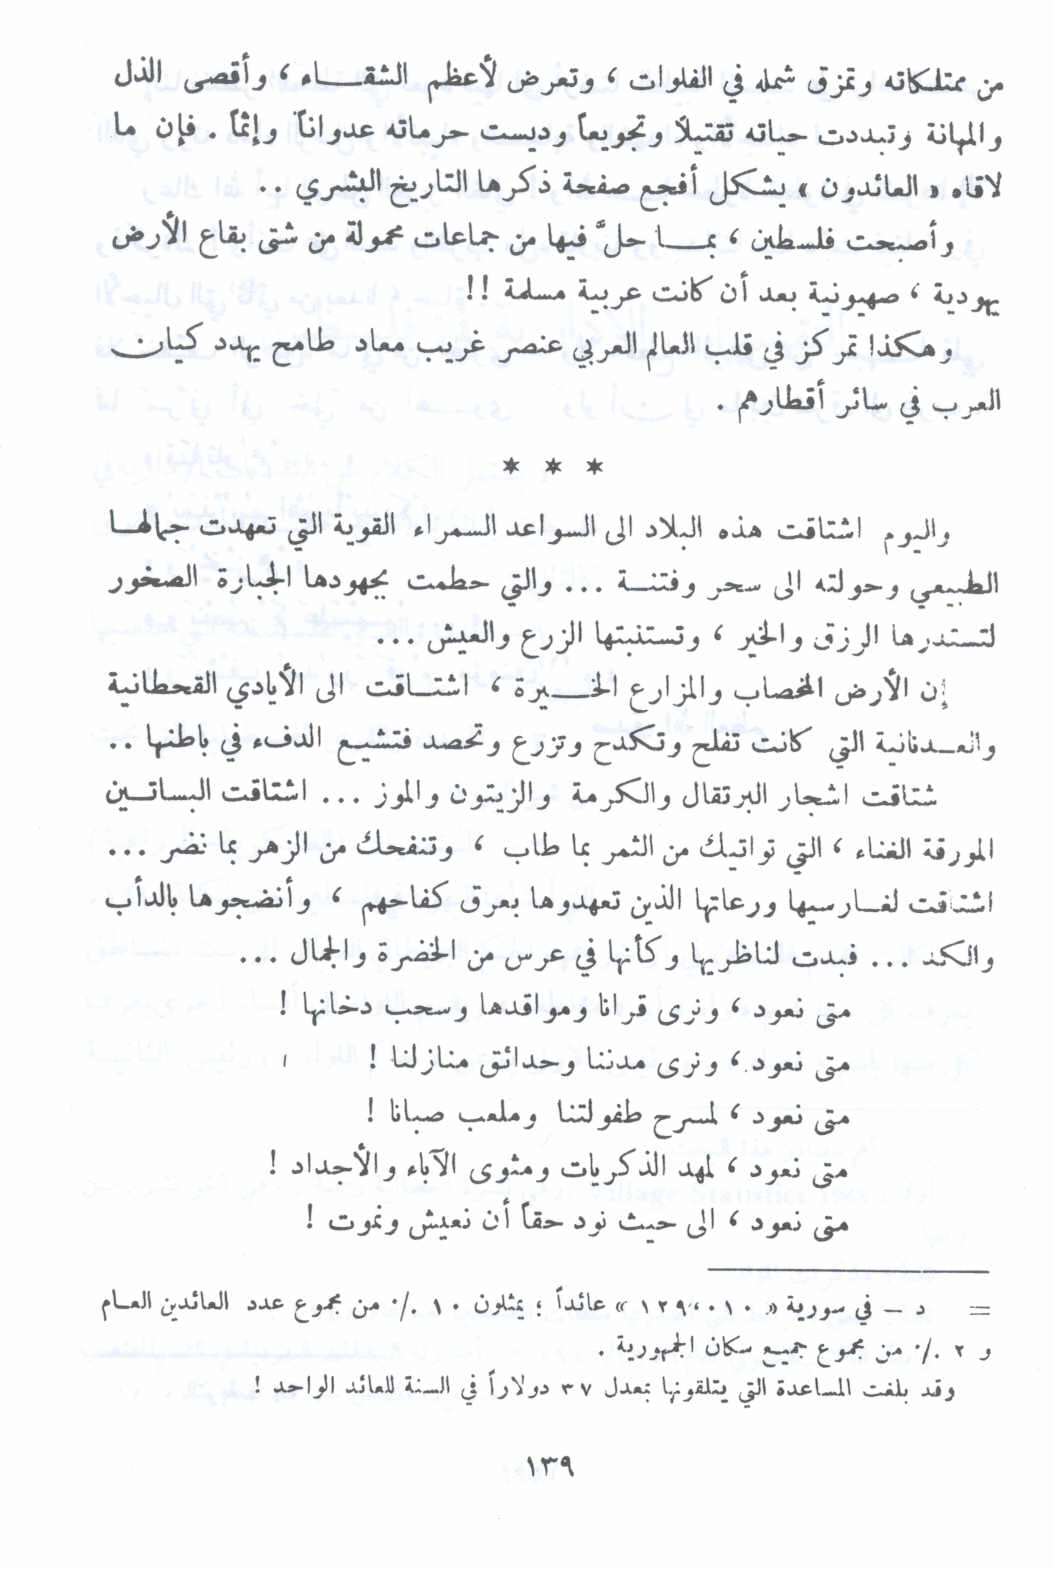 من ممتلكاته وتمزق شمله في الفلوات ، وتعرض لأعظم الشقــاء ، وأقصى الذل
والمهانة وتبددت حياته تقتيلاً وتجويعاً وديست حرماته عدواناً وإثماً . فإن ما
لاقاه « العائدون » يشكل أفجع صفحة ذكرها التاريخ البشري ..
وأصبحت فلسطين ، بمــا حلّ فيها من جماعات محمولة من شتى بقاع الأرض
يهودية ، صهيونية بعد أن كانت عربية مسلمة !!
وهكذا تمركز في قلب العالم العربي عنصر غريب معاد طامح يهدد كيان
العرب في سائر أقطارهم .
* * *
واليوم اشتاقت هذه البلاد الى السواعد السمراء القوية التي تعهدت جمالهـا
الطبيعي وحولته الى سحر وفتنــة ... والتي حطمت بجهودها الجبارة الصخور
لتستدرها الرزق والخير ، وتستنبتها الزرع والعيش ...
إن الأرض المخصاب والمزارع الخــيرة ، اشتــاقت الى الأيادي القحطانية
والعــدنانية التي كانت تفلح وتكدح وتزرع وتحصد فتشيـع الدفء في باطنها ..
شتاقت اشجار البرتقال والكرمة والزيتون والموز ... اشتاقت البساتــين
المورقة الغناء ، التي تواتيك من الثمر بما طاب ، وتنفحك من الزهر بما نضر ...
اشتاقت لغــارسيها ورعاتها الذين تعهدوها بعرق كفاحهم ، وأنضجوها بالدأب
والكد ... فبدت لناظريها وكأنها في عرس من الخضرة والجمال ...
متى نعود ، ونرى قرانا ومواقدها وسحب دخانها !
متى نعود ، ونرى مدننا وحدائق منازلنا !
متى نعود ، لمسرح طفولتنا وملعب صبانا !
متى نعود ، لمهد الذكريات ومثوى الآباء والأجداد !
متى نعود ، الى حيث نود حقاً أن نعيش ونموت !
= د – في سورية « ١٢٩،٠١٠ » عائداً ؛ يمثلون ١٠ ٪ من مجموع عدد العائدين العـام
و ٢ ٪ من مجموع جميـع سكان الجمهورية .
وقد بلغت المساعدة التي يتلقونها بمعدل ٣٧ دولاراً في السنة للعائد الواحد !
١٣٩